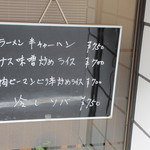 ラーメン 半チャーハン ¥750
ナス味噌炒めライス ¥700
肉ピーマンピリ辛炒めライス ¥700
冷しソバ ¥750